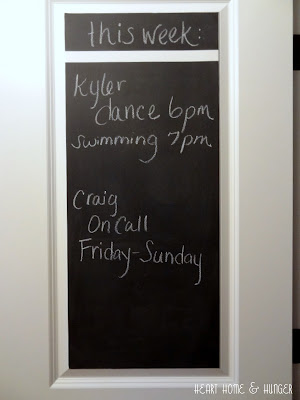 this week:
Kyler
dance 6pm
swimming 7pm
Craig
On Call
Friday-Sunday
HEART HOME & HUNGER